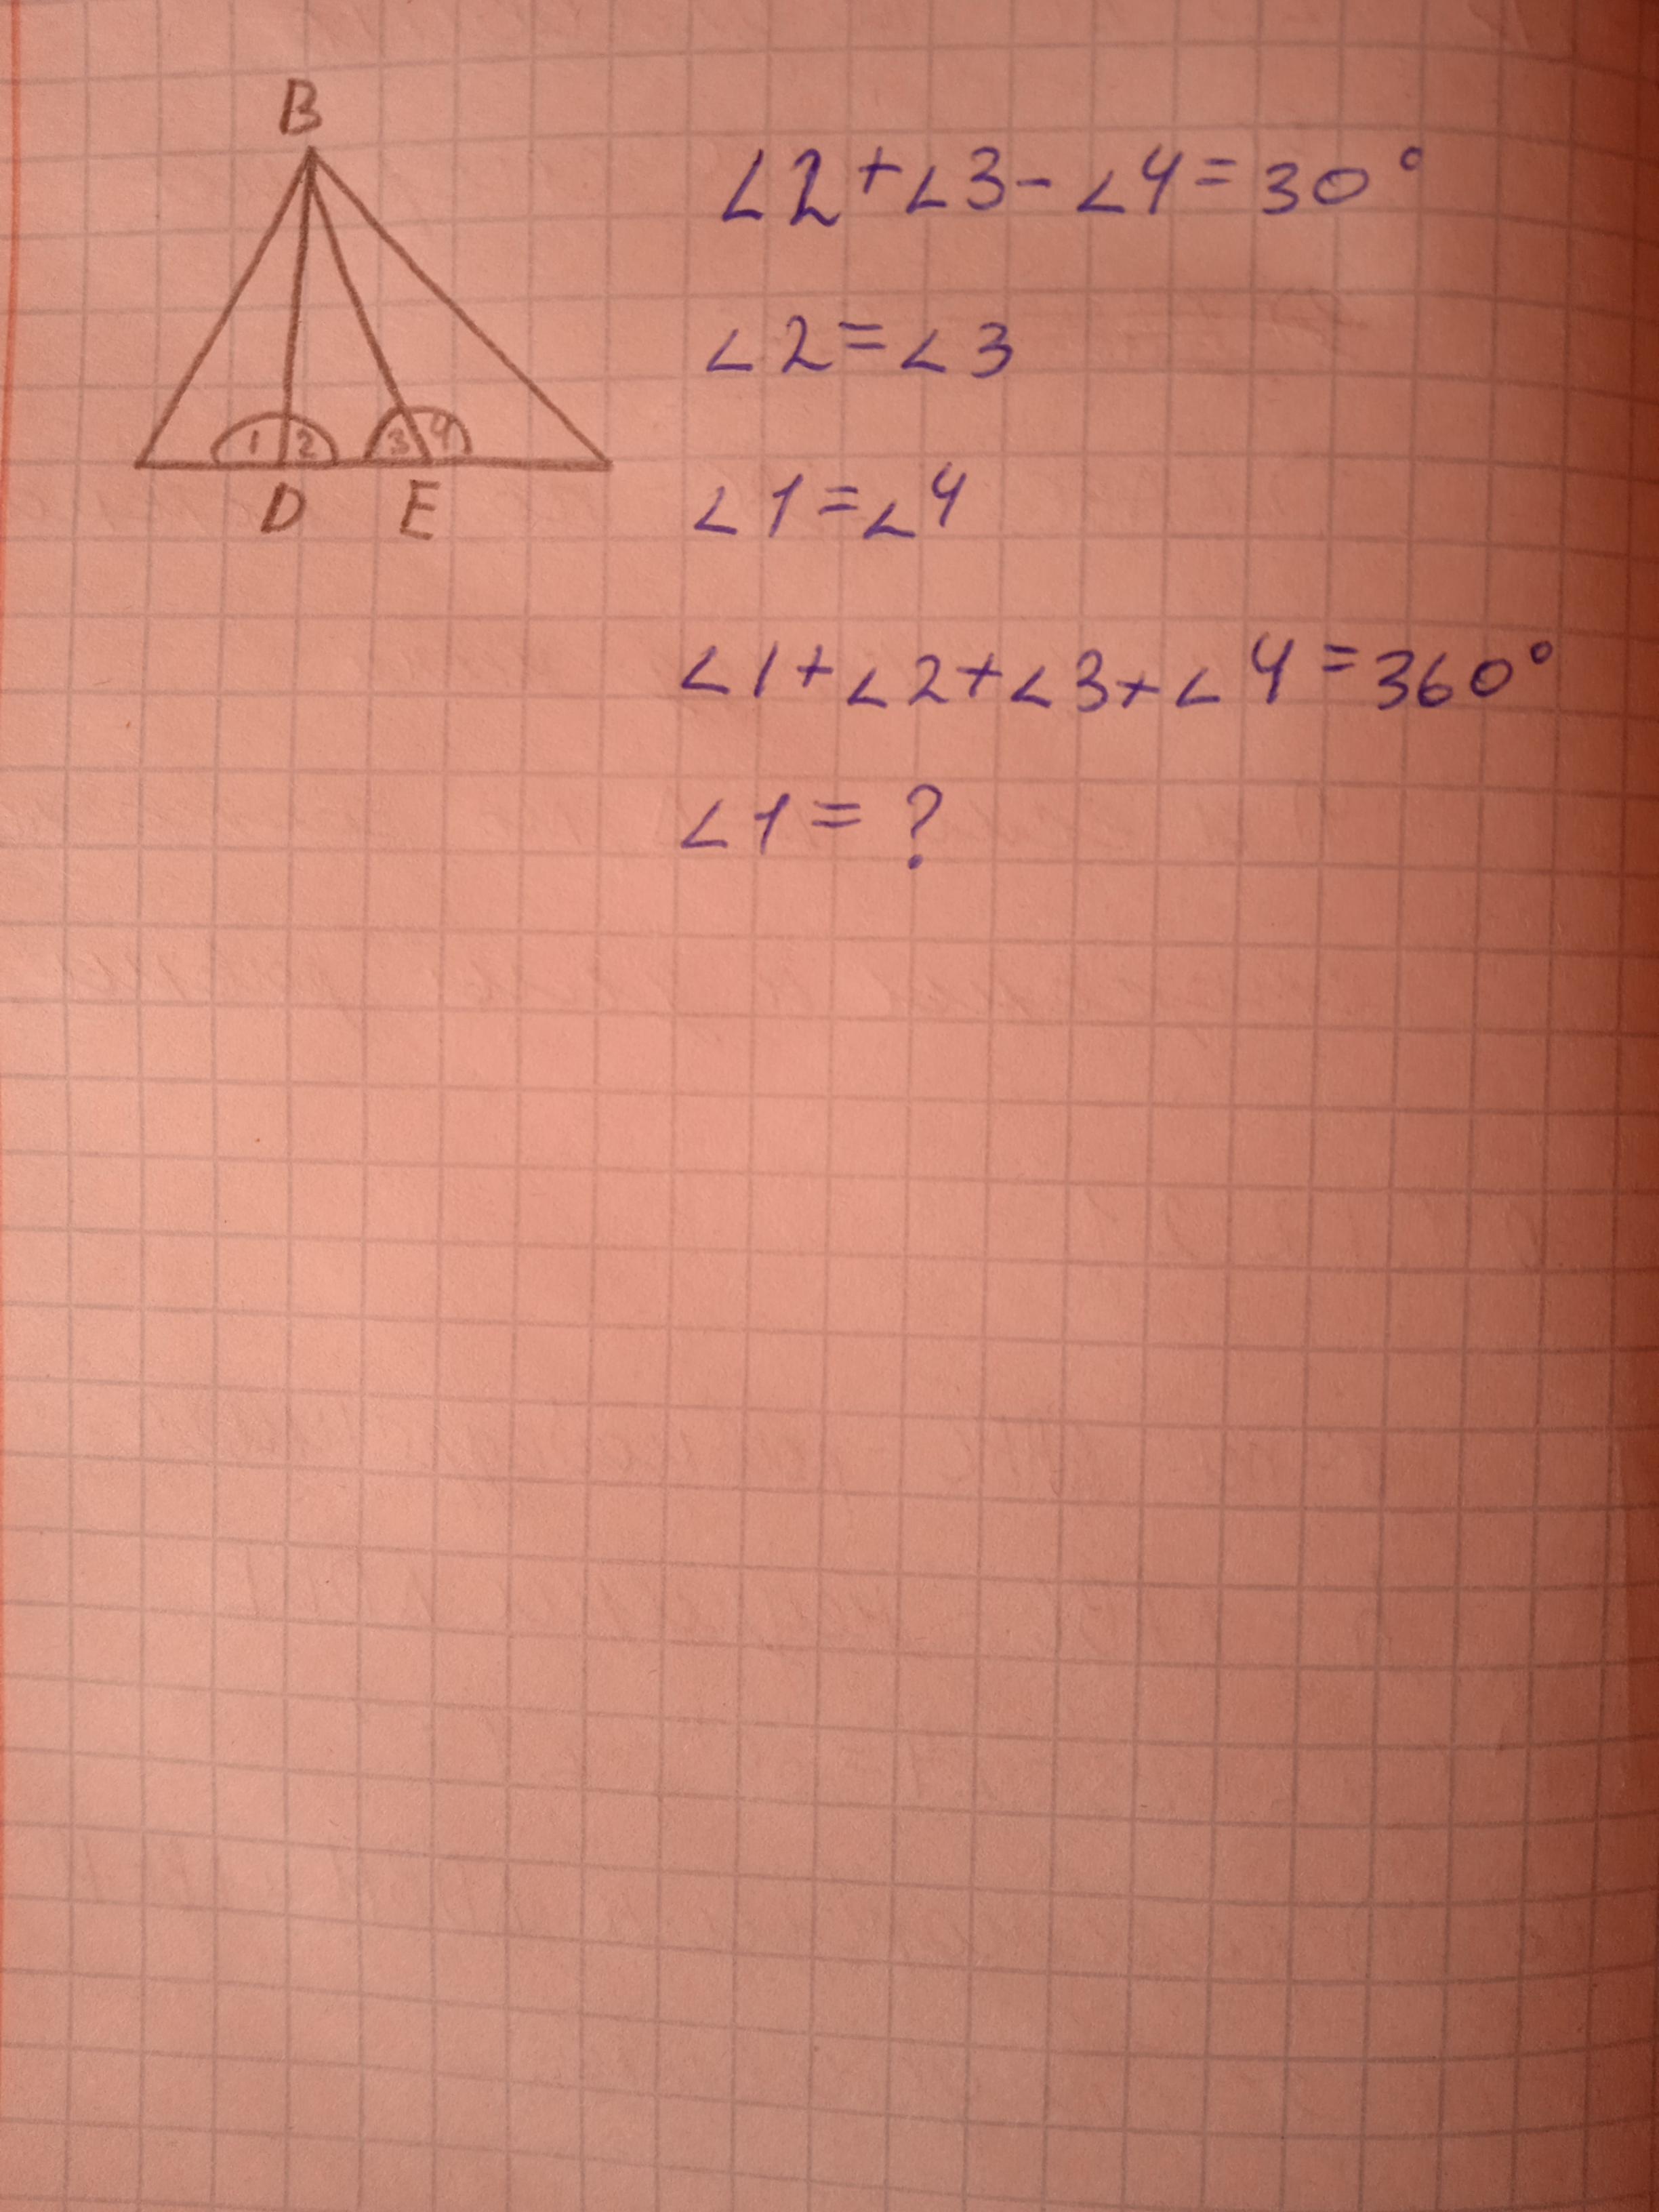 B
1 2 3 4
D E
∠2+∠3-∠4=30°
∠2=∠3
∠1=∠4
∠1+∠2+∠3+∠4=360°
∠1=?